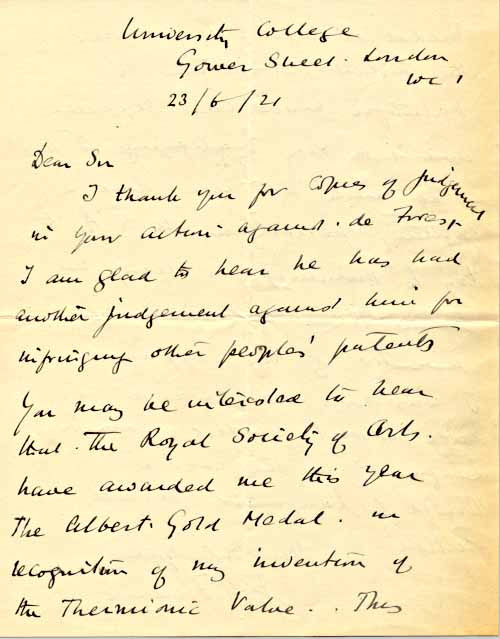 University College
Gower Street. London
WC 1
23/6/21
Dear Sir
I thank you for Copies of Judgement
in your action against. de Forest
I am glad to hear he has had
another judgement against him for
infringing other peoples' patents
You may be interested to hear
that. the Royal Society of Arts.
have awarded me this year
The Albert. Gold Medal. in
recognition of my invention of
the Thermionic Valve. . This